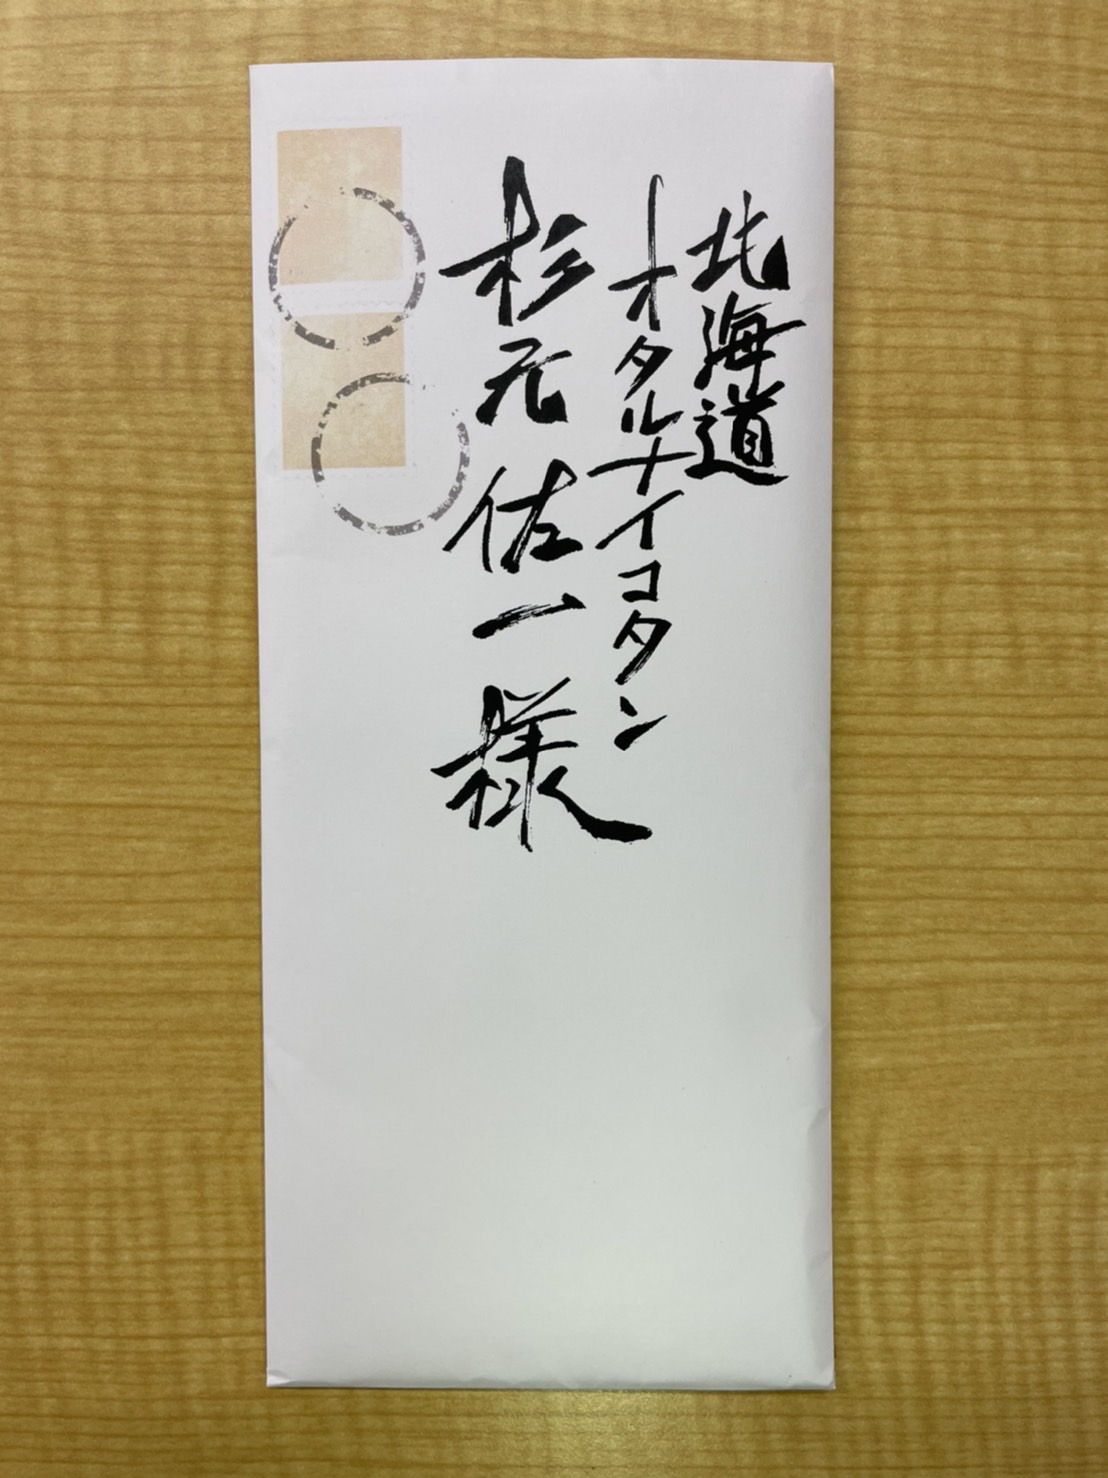 北海道
オタルナイコタン
杉元佐一様